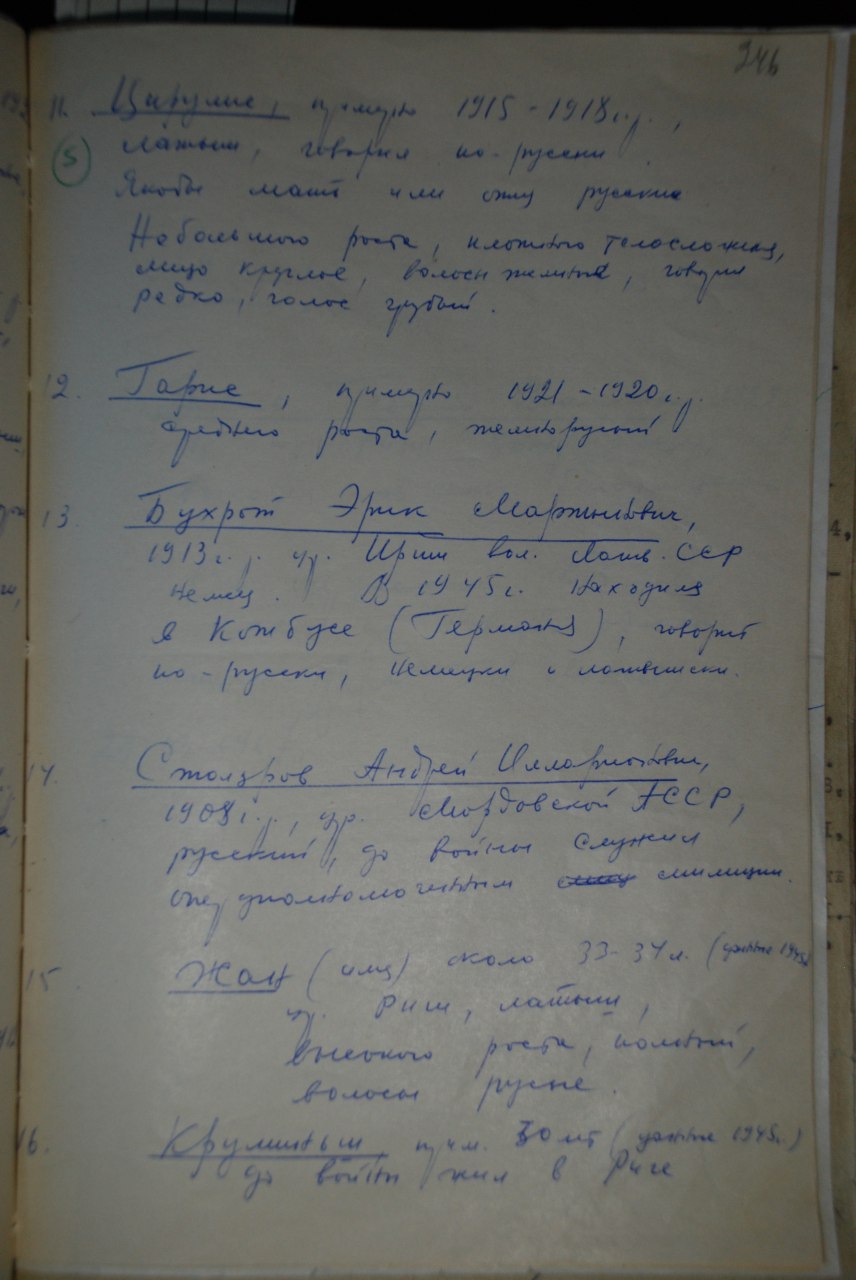 246
11. Цирулис, примерно 1915-1918 г.р.,
5
латыш, говорил по-русски.
Якобы мать или отец русские
Небольшого роста, плотного телосложения,
лицо круглое, волосы темные, говорил
редко, голос грубый.
12. Гарис, примерно 1921-1920 г.р.
среднего роста, темнорусый
13. Бухрот Эрик Мартынович,
1913 г.р. ур. вол. Латв. ССР
немец. В 1945 г. находился
в Котбусе (Германия), говорит
по-русски, немецки и латышски.
14. Столяров Андрей Илларионович,
1908 г.р., ур. Мордовской АССР,
русский, до войны служил
оперуполномоченным милиции.
15. Жан (имя) около 33-34 л. (данные 1945)
ур. Риги, латыш,
высокого роста, полный,
волосы русые.
16. Круминьш прим. 30 лет (данные 1945 г.)
до войны жил в Риге